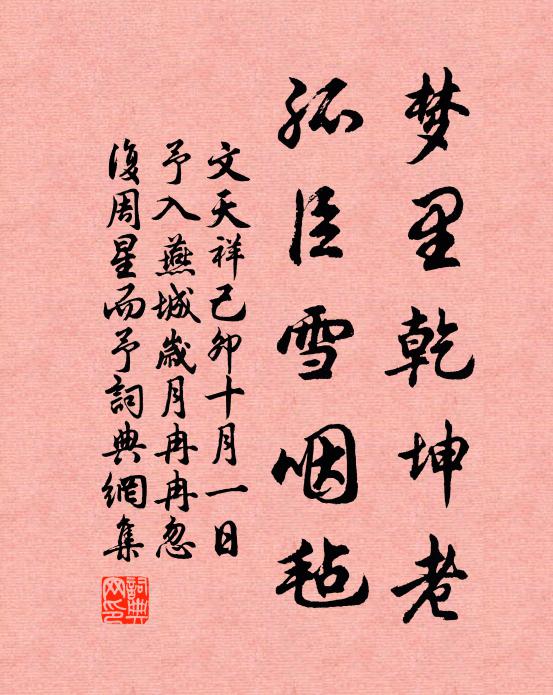 梦里乾坤老
孤臣雪咽毡
文天祥己卯十月一日
予入燕城岁月冉冉忽
復周星而予詞典網集
詞典
网印